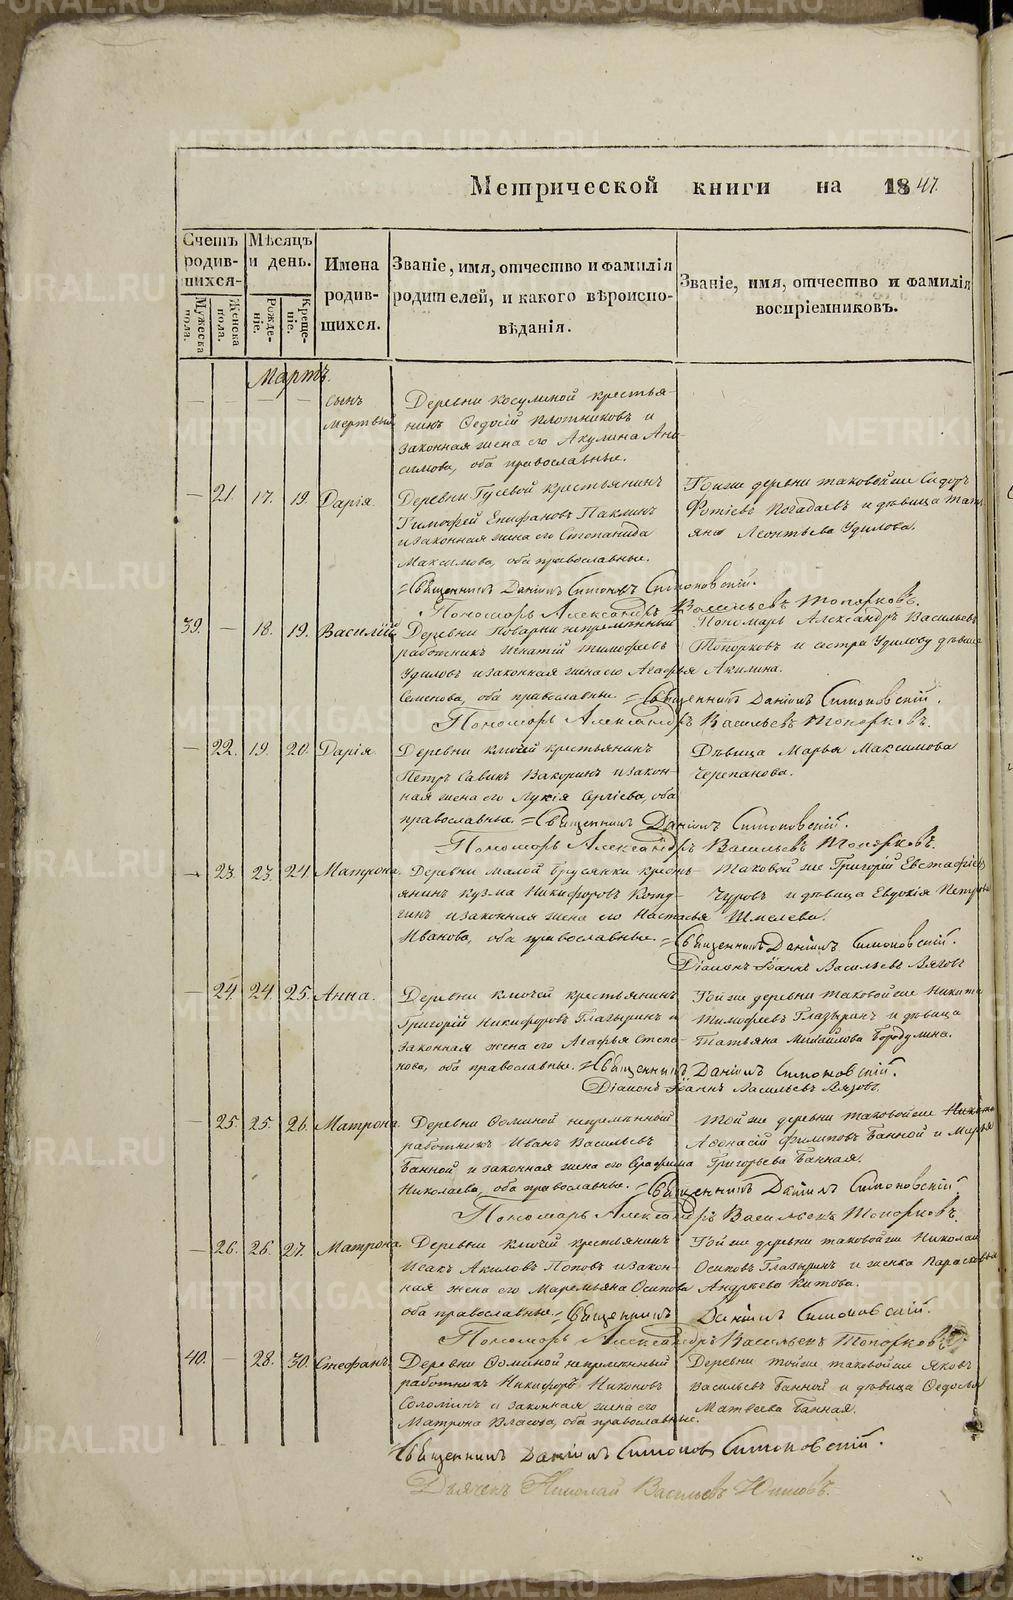 Метрической книги на 1847.
Счетъ родив-шихся.
Мѣсяцъ и день.
Имена родив-шихся.
Званіе, имя, отчество и фамилія родителей, и какого вѣроиспо-вѣданія.
Званіе, имя, отчество и фамилія воспріемниковъ.
Мужеска пола.
Женска пола.
Рожде-ніе.
Креще-ніе.
Мартъ.
— — — — сынъ Деревни Косулиной крестья-
мертвый нинъ Ѳедосій Плотниковъ и
законная жена его Акулина Ани-
симова, оба православные.
— 21. 17. 19. Дарія. Деревни Гусевой крестьянинъ Тойже деревни таковойже Сидоръ
Тимофей Епифановъ Паклинъ Фотіевъ Погадаевъ и дѣвица Тать-
и законная жена его Степанида яна Леонтьева Удилова.
Максимова, оба православные.
Священникъ Даніилъ Симоновъ Симоновскій.
Пономарь Александръ Васильевъ Топорковъ.
39. — 18. 19. Василій Деревни Поварни непремѣнный Пономарь Александръ Васильевъ
работникъ Игнатій Тимофеевъ Топорковъ и сестра Удилову дѣвица
Удиловъ и законная жена его Агафья Акилина.
Семенова, оба православные. Священникъ Даніилъ Симоновскій.
Пономарь Александръ Васильевъ Топорковъ.
— 22. 19. 20. Дарія. Деревни Ключей крестьянинъ Дѣвица Марья Максимова
Петръ Савинъ Вакоринъ и закон- Черепанова.
ная жена его Лукія Сергіева, оба
православные. Священникъ Даніилъ Симоновскій.
Пономарь Александръ Васильевъ Топорковъ.
— 23. 23. 24. Матрона. Деревни Малой Брусянки кресть- Таковой же Григорій Евстафіевъ
янинъ Кузма Никифоровъ Чуровъ и дѣвица Евдокія Петрова
и законная жена его Настасья Шмелева.
Иванова, оба православные. Священникъ Даніилъ Симоновскій.
Діаконъ Іоаннъ Васильевъ
— 24. 24. 25. Анна. Деревни Ключей крестьянинъ Тойже деревни таковойже Никита
Григорій Никифоровъ Глазыринъ и Тимофеевъ Глазыринъ и дѣвица
законная жена его Агафья Степа- Татьяна Михайлова Бородулина.
нова, оба православные. Священникъ Даніилъ Симоновскій.
Діаконъ Іоаннъ Васильевъ
— 25. 25. 26. Матрона. Деревни Ѳоминой непремѣнный Тойже деревни таковойже
работникъ Иванъ Васильевъ Аѳонасій Филиповъ Банной и Марья
Банной и законная жена его Серафима Григорьева Банная.
Николаева, оба православные. Священникъ Даніилъ Симоновскій
Пономарь Александръ Васильевъ Топорковъ.
— 26. 26. 27. Матрона. Деревни Ключей крестьянинъ Тойже деревни таковойже Николай
Исакъ Акиловъ Поповъ и закон- Осиповъ Глазыринъ и женка Парасковья
ная жена его Маремьяна Осипова Андреева Китова.
оба православные. Священникъ Даніилъ Симоновскій.
Пономарь Александръ Васильевъ Топорковъ
40. — 28. 30. Стефанъ. Деревни Ѳоминой непремѣнный Деревни тойже таковойже Яковъ
работникъ Никифоръ Никоновъ Васильевъ Банной и дѣвица Ѳедосья
Соломинъ и законная жена его Матвеева Банная.
Матрона Власова, оба православные.
Священникъ Даніилъ Симоновъ Симоновскій.
Дьячекъ Николай Васильевъ
METRIKI.GASO-URAL.RU